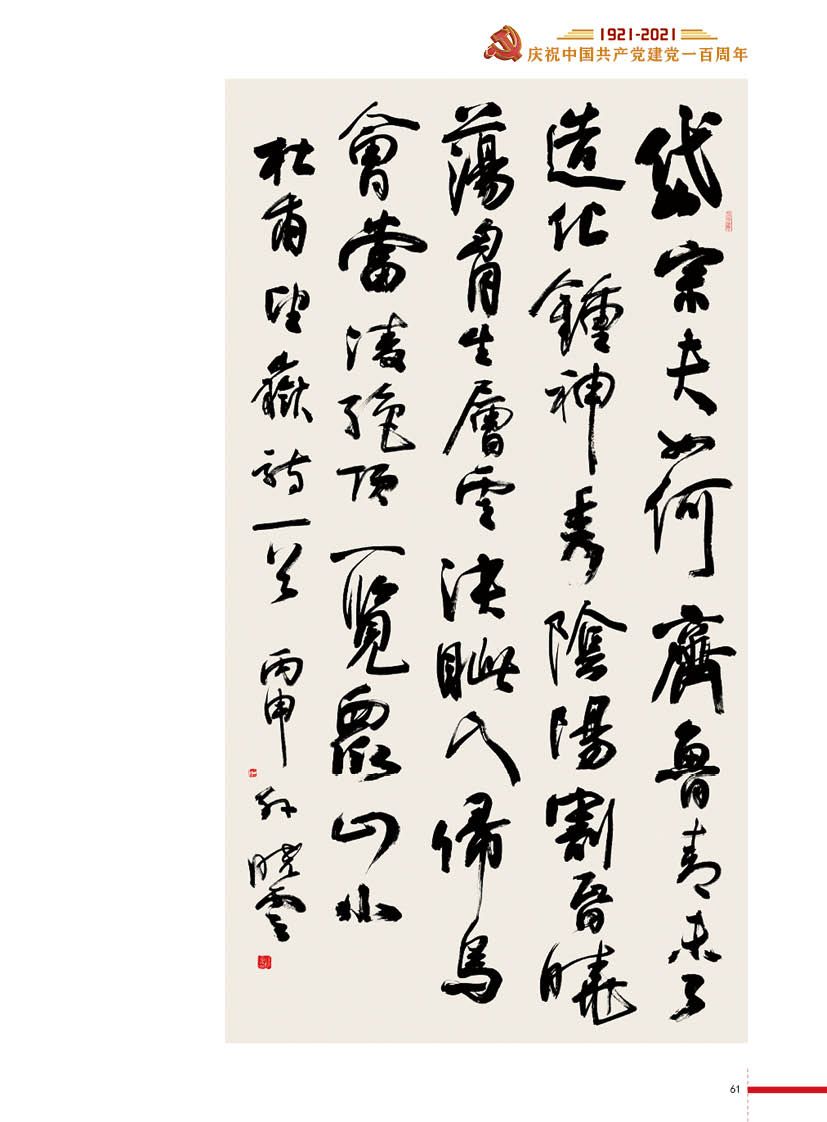 1921-2021
庆祝中国共产党建党一百周年
岱宗夫如何齊魯青未了
造化鍾神秀陰陽割昏曉
蕩胷生層雲決眦入歸鳥
會當凌絶頂一覽衆山小
杜甫望嶽詩一首 丙申 孙曉雲
61